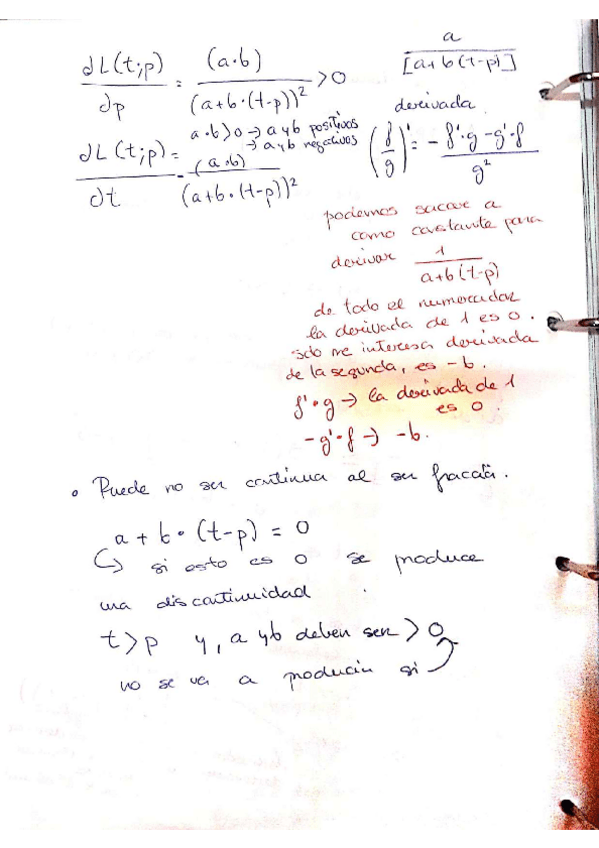 ∂L(t;p)/∂p = (a·b)/(a+b·(t-p))² >0
a·b>0 → a y b positivos
→ a y b negativos
∂L(t;p)/∂t = -(a·b)/(a+b·(t-p))²
a/[a+b(t-p)]
derivada
(f/g)' = - f'·g - g'·f / g²
podemos sacar a
como constante para
derivar 1/a+b(t-p)
de todo el numerador
la derivada de 1 es 0.
solo me interesa derivada
de la segunda, es -b.
f'·g → la derivada de 1
es 0.
-g'·f → -b.
• Puede no ser continua al ser fracción.
a + b·(t-p) = 0
↳ si esto es 0 se produce
una discontinuidad
t>p y, a y b deben ser >0
no se va a producir si